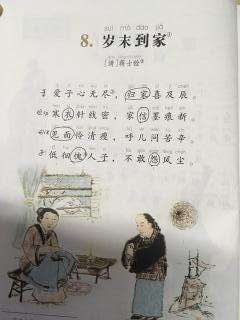 suì mò dào jiā
8. 岁末到家①
[清]蒋士铨②
爱子心无尽，归家喜及辰。
寒衣针线密，家信墨痕新。
见面怜清瘦，呼儿问苦辛。
低徊愧人子，不敢怨风尘。